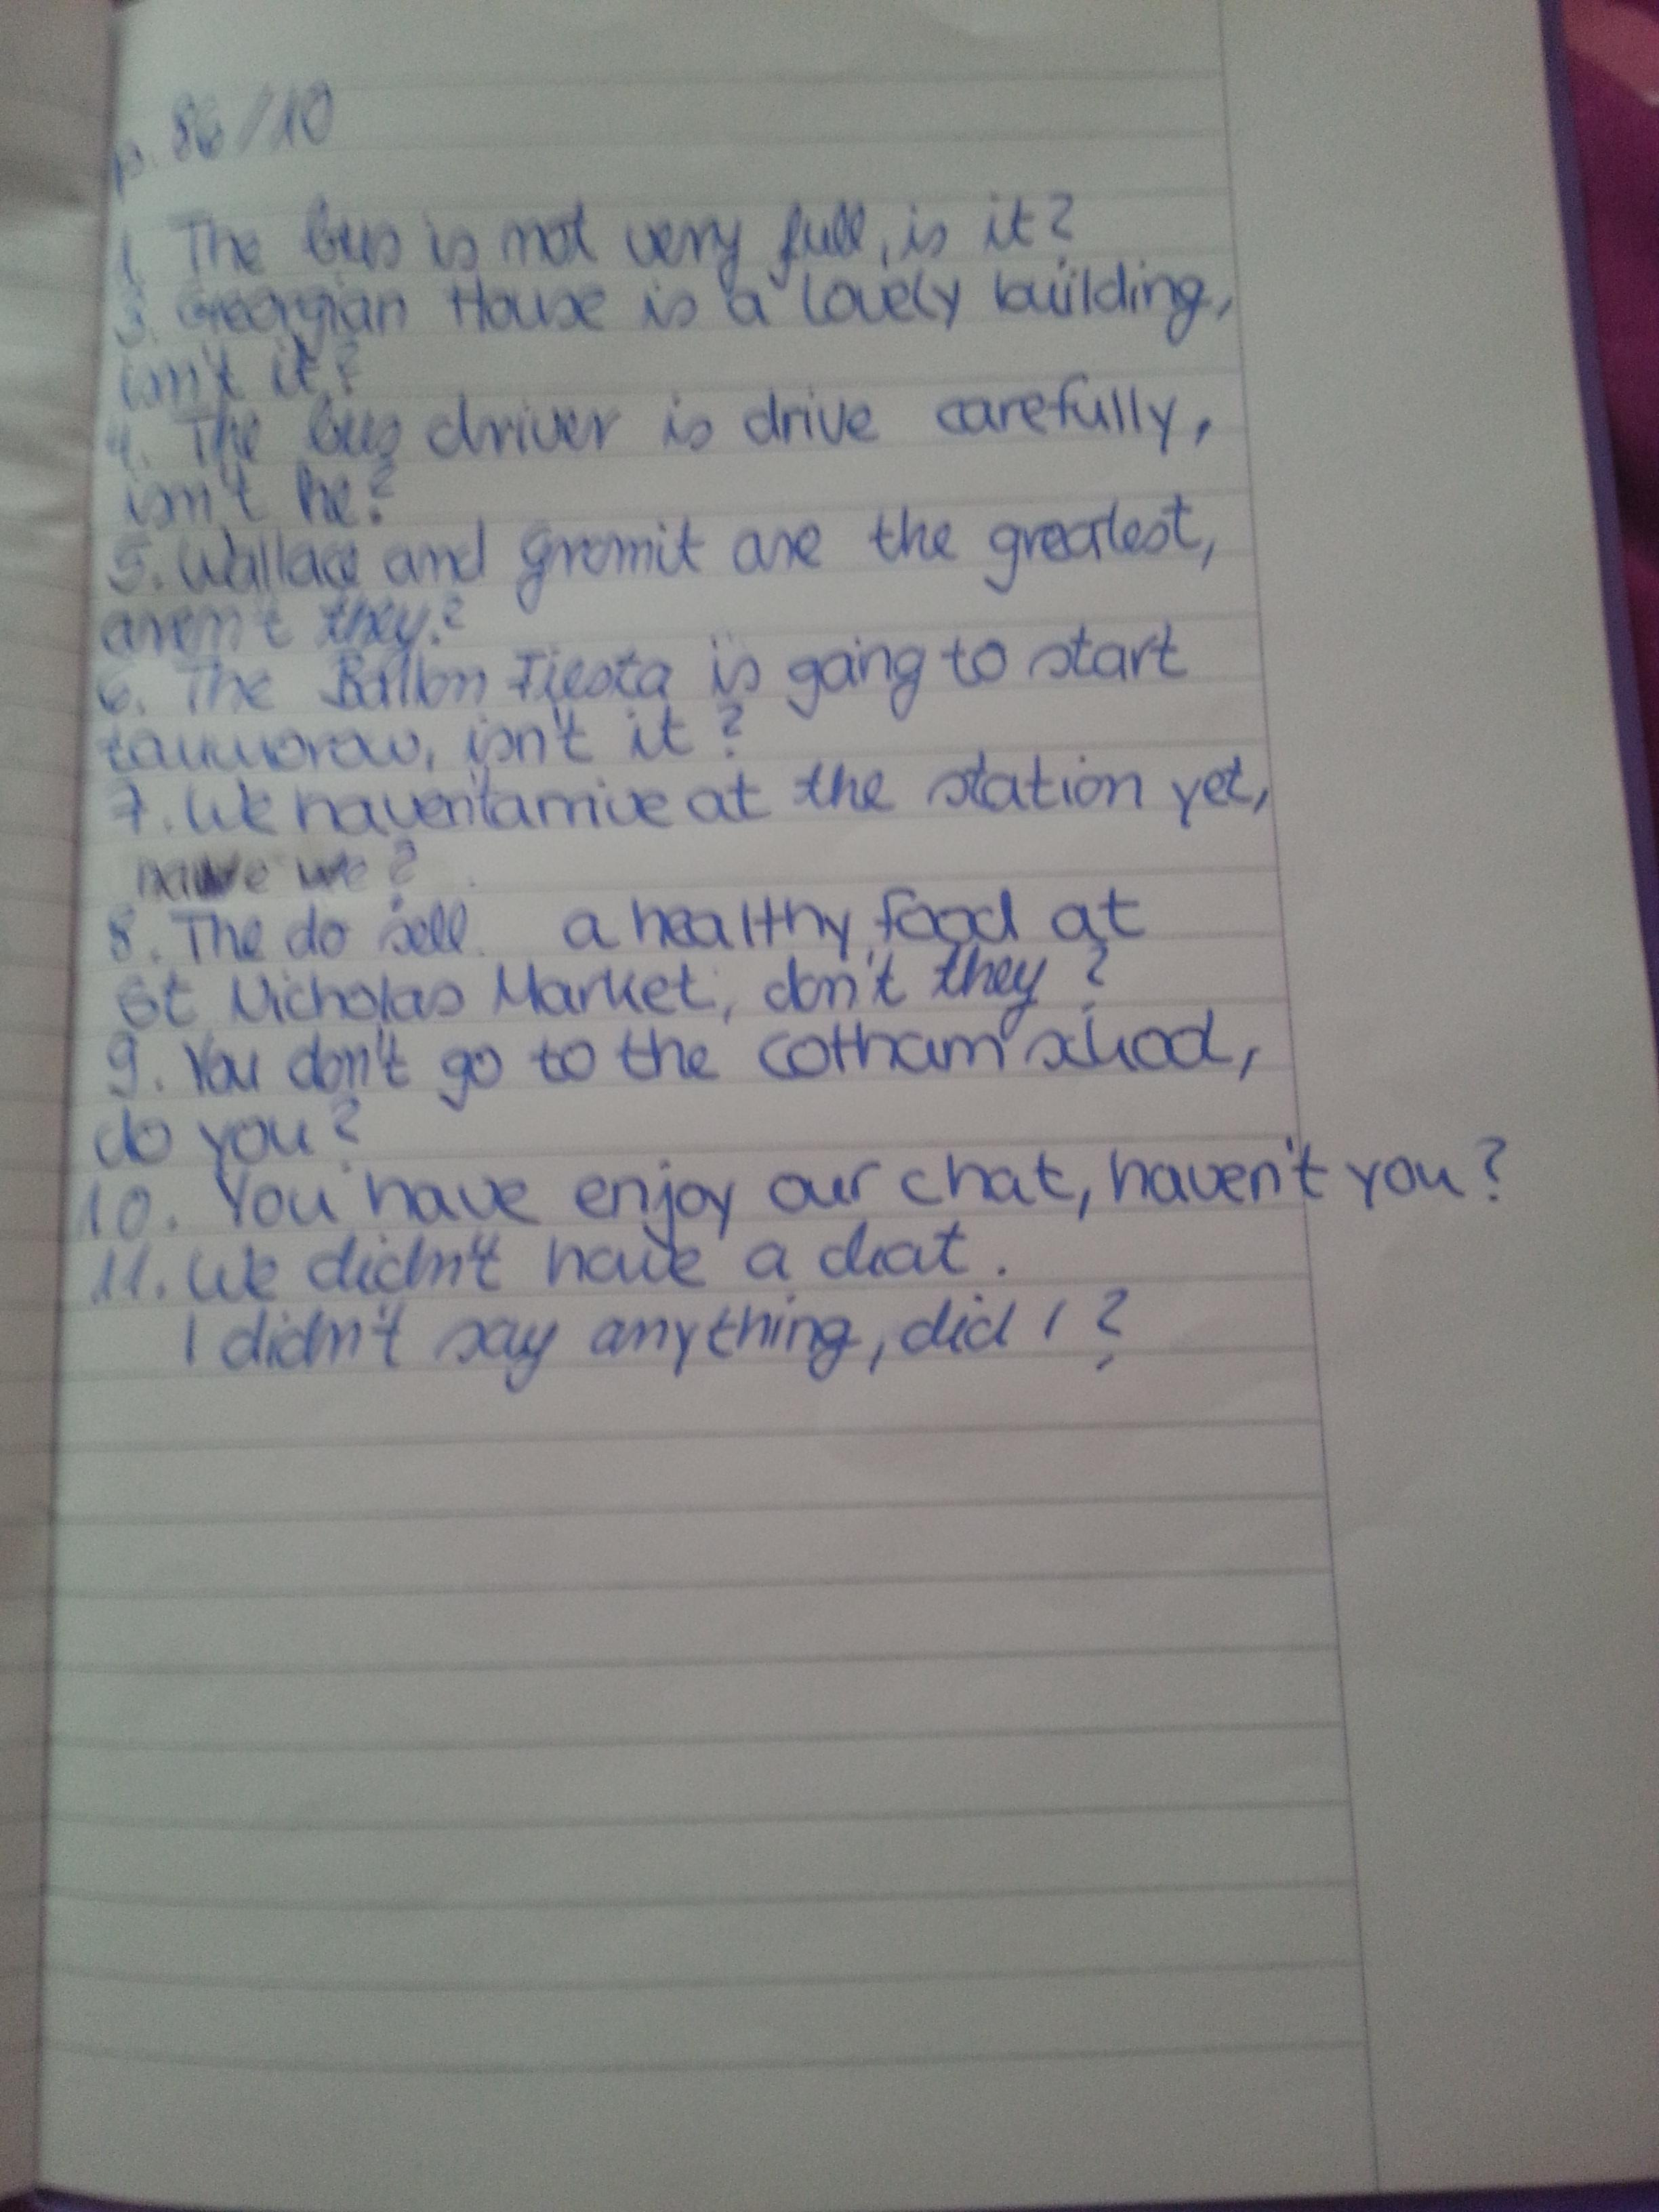 p. 86/10
1. The bus is not very full, is it?
3. Georgian House is a lovely building,
isn't it?
4. The bus driver is drive carefully,
isn't he?
5. Wallace and Gromit are the greatest,
aren't they?
6. The Ballon Fiesta is going to start
isn't it?
7. We haven't arrive at the station yet,
have we?
8. The do sell a healthy food at
St Nicholas Market, don't they?
9. You don't go to the Cotham school,
do you?
10. You have enjoy our chat, haven't you?
11. We didn't have a chat.
I didn't say anything, did I?